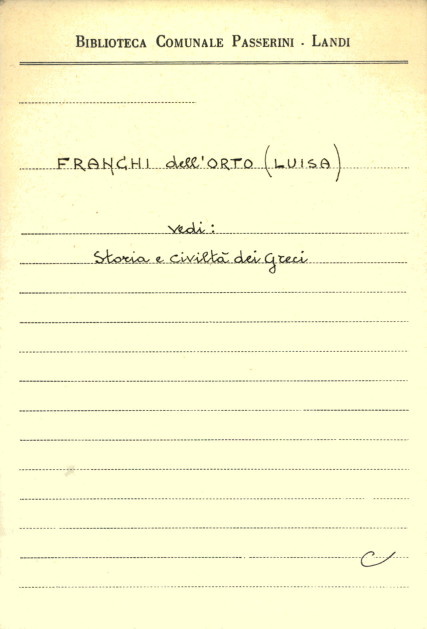 BIBLIOTECA COMUNALE PASSERINI - LANDI
FRANCHI dell'ORTO (LUISA)
vedi:
Storia e civiltà dei Greci
C